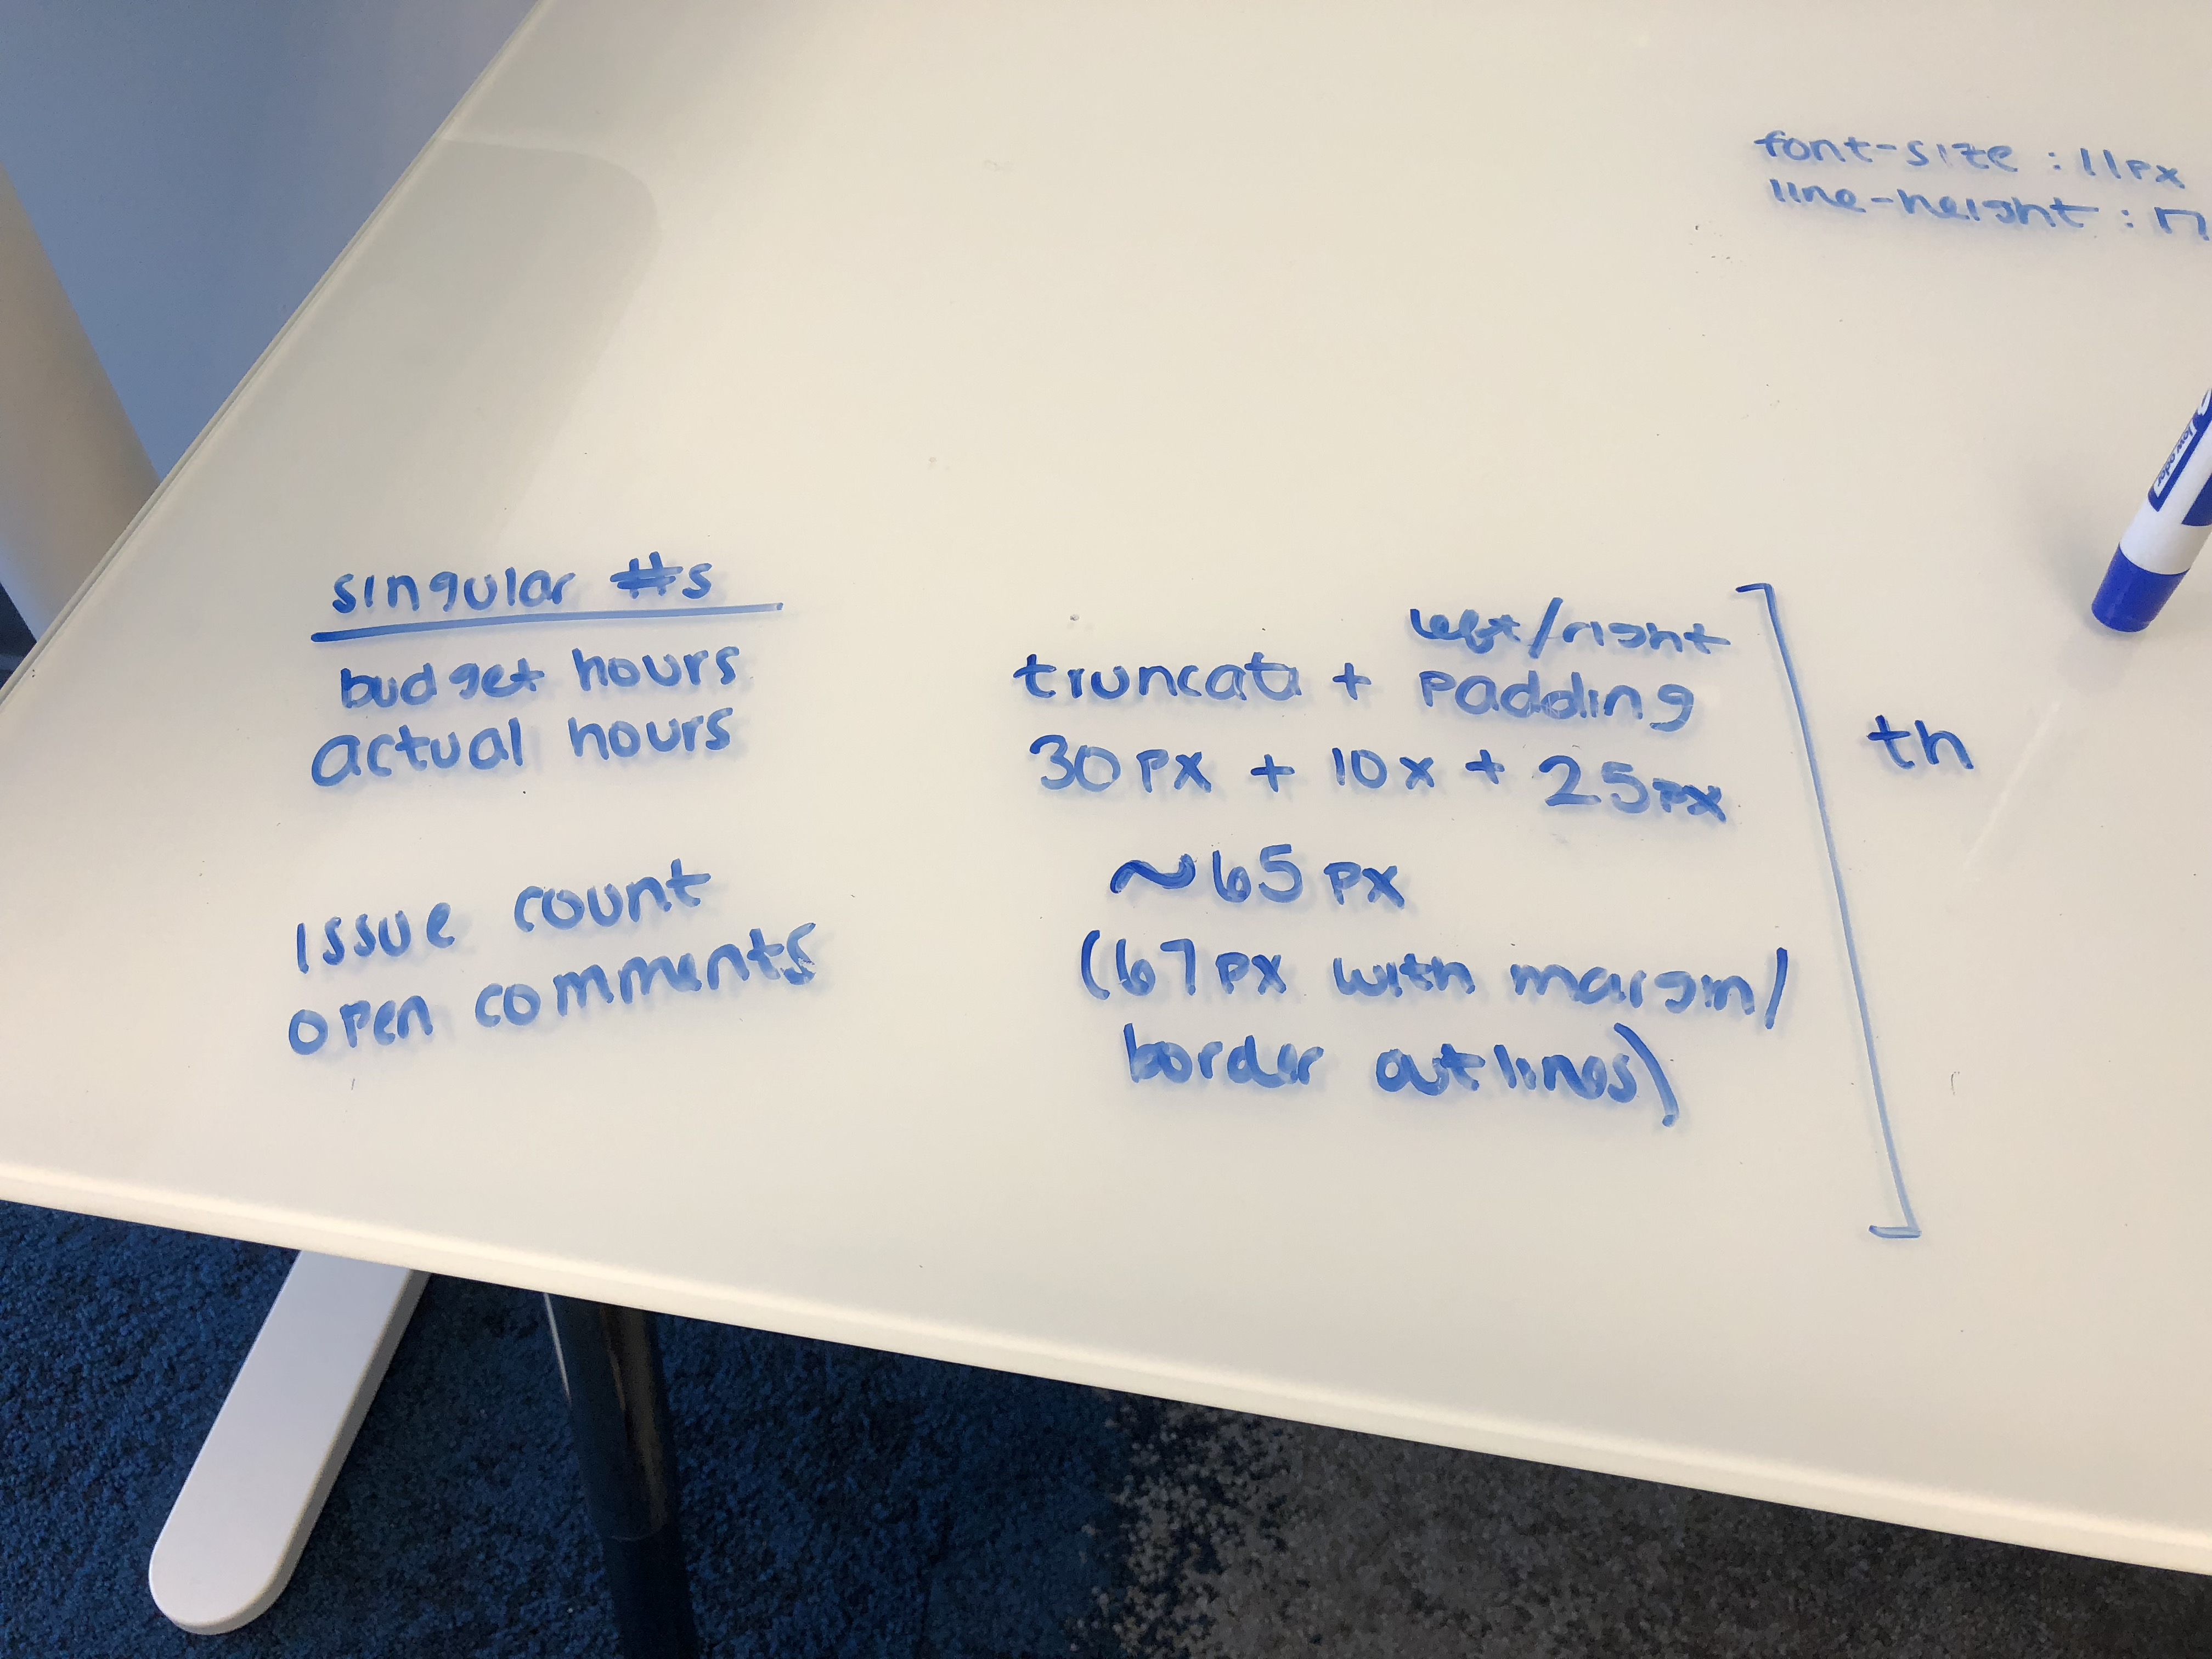 font-size : 11px
line-height : 17
low odor
singular #s
budget hours
actual hours
issue count
open comments
left/right
truncate + padding
30px + 10x + 25px
~65px
(67px with margin/
border outlines)
th